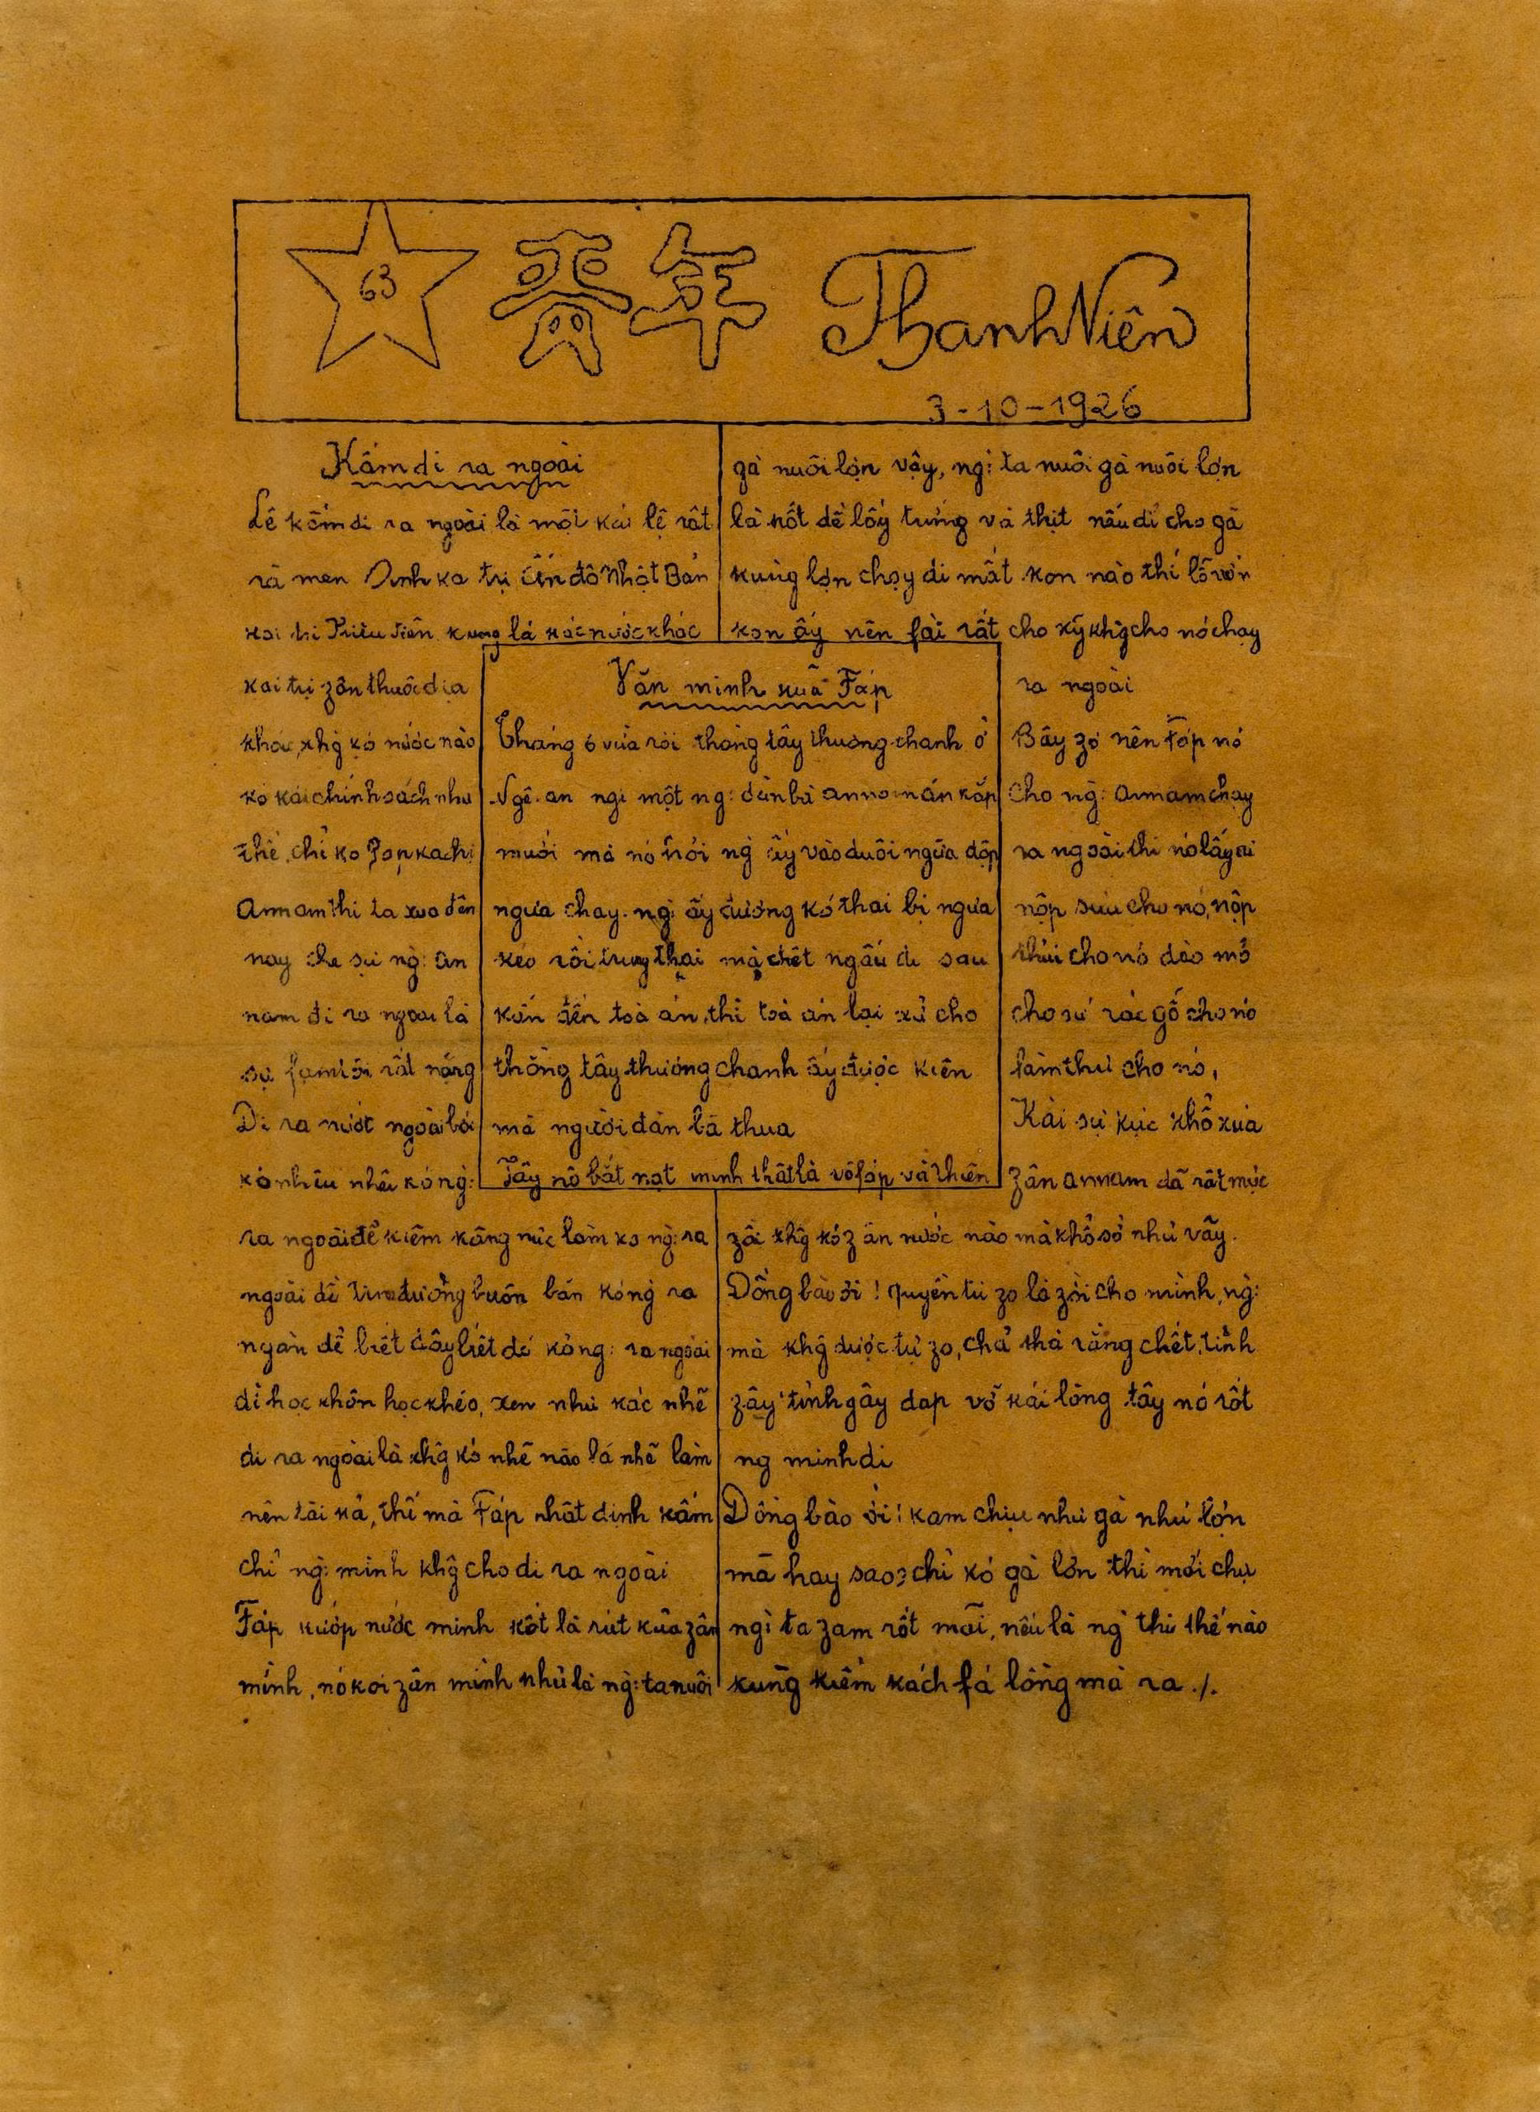 63
青年
Thanh Niên
3-10-1926
Kấm đi ra ngoài
Lệ kấm đi ra ngoài là một kái lệ rất
rã men Anh ka trị Ấn độ Nhật Bản
kai trị Triều tiên kung là kác nước khác
kai trị zân thuôc địa
khác, khg kó nước nào
kó kái chính sách như
thế, chỉ kó
Annam thì ta xưa đến
nay che sự ng: An
nam đi ra ngoài là
sự fạm tội rất nặng
Đi ra nước ngoài bởi
kó nhiều nhẽ kó ng:
ra ngoài để kiếm kâng việc làm kó ng: ra
ngoài để tìm đường buôn bán kó ng ra
ngoàn để biết đây biết đó kó ng: ra ngoài
để học khôn học khéo, xem như kác nhẽ
đi ra ngoài là khg kó nhẽ nào là nhẽ làm
nên tội kả, thế mà Fáp nhất định kấm
chỉ ng: mình khg cho đi ra ngoài
Fáp kướp nước mình kốt là rút kủa zân
mình, nó koi zân mình như là ng: ta nuôi
gà nuôi lợn vậy, ng: ta nuôi gà nuôi lợn
là kốt để lấy trứng và thịt nếu để cho gà
kung lợn chạy đi mất kon nào thì lỗ vốn
kon ấy nên fải rất cho kỹ khg cho nó chạy
ra ngoài
Bây zờ nên Fáp nó
cho ng: Annam chạy
ra ngoài thì nó lấy ai
nộp sưu cho nó, nộp
thuế cho nó đào mỏ
cho nó vác gỗ cho nó
làm thuê cho nó,
Kái sự kực khổ kủa
zân annam đã rất mực
zồi khg kó zân nước nào mà khổ sở như vậy.
Đồng bào ơi! quyền tự zo là zời cho mình, ng:
mà khg được tự zo, chả thà rằng chết, tỉnh
zậy tỉnh zậy đạp vỡ kái lồng tây nó rốt
ng mình đi
Đồng bào ơi! kam chịu như gà như lợn
mà hay sao? chỉ kó gà lợn thì mới chịu
ngì ta zam rốt mãi, nếu là ng thì thế nào
kung kiếm kách fá lồng mà ra ./.
Văn minh kuả Fáp
Tháng 6 vừa rồi thằng tây thương chanh ở
Ngệ-an ngi một ng: đàn bà annam án kắp
muối mà nó trói ng ấy vào đuôi ngựa đập
ngựa chạy. ng: ấy đương kó thai bị ngựa
kéo rồi truỵ thai mà chết ngấu đi sau
kiện đến toà án, thì toà án lại xử cho
thằng tây thương chanh ấy được kiện
mà người đàn bà thua
Tây nó bắt nạt mình thật là vô fáp vô thiên